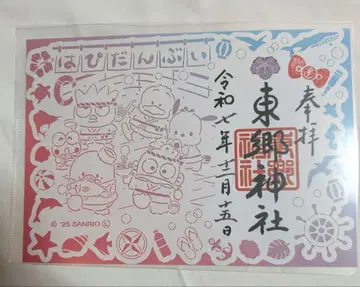 はぴだんぶい
奉拝
東郷神社
令和七年十二月十五日
© '25 SANRIO Ⓛ